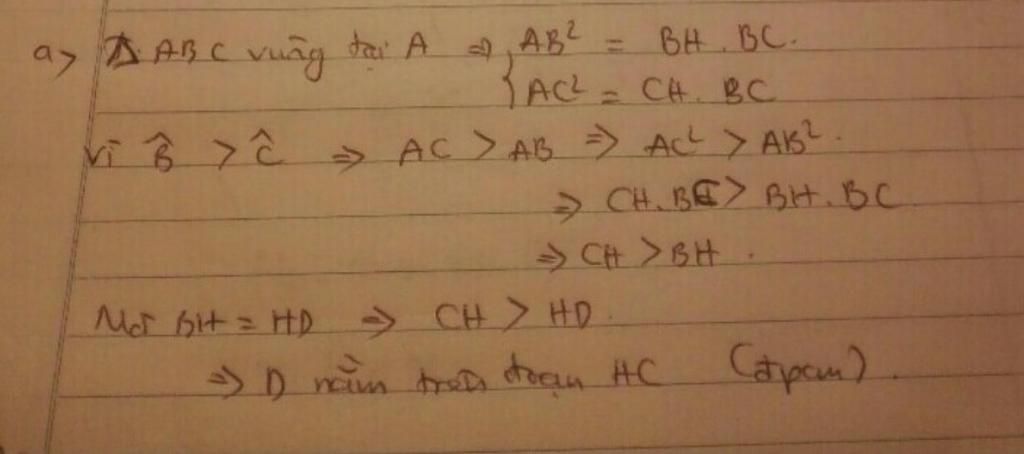 a> Δ ABC vuông tại A ⇒ { AB² = BH . BC.
AC² = CH . BC
Vì B̂ > Ĉ ⇒ AC > AB ⇒ AC² > AB².
⇒ CH . BC > BH . BC
⇒ CH > BH .
Mà BH = HD ⇒ CH > HD.
⇒ D nằm trên đoạn HC (đpcm).